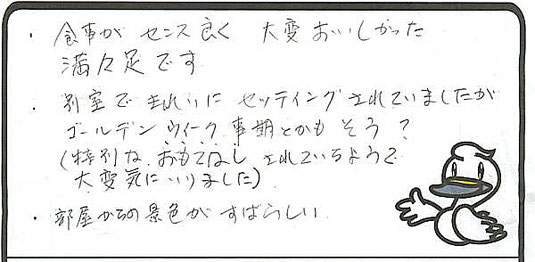 ・食事が センス良く 大変おいしかった
満々足です
・別室で きれいに セッティングされていましたが
ゴールデンウィーク 事期とかも そう？
(特別な おもてなし されているようで
大変気にいりました)
・部屋からの景色が すばらしい